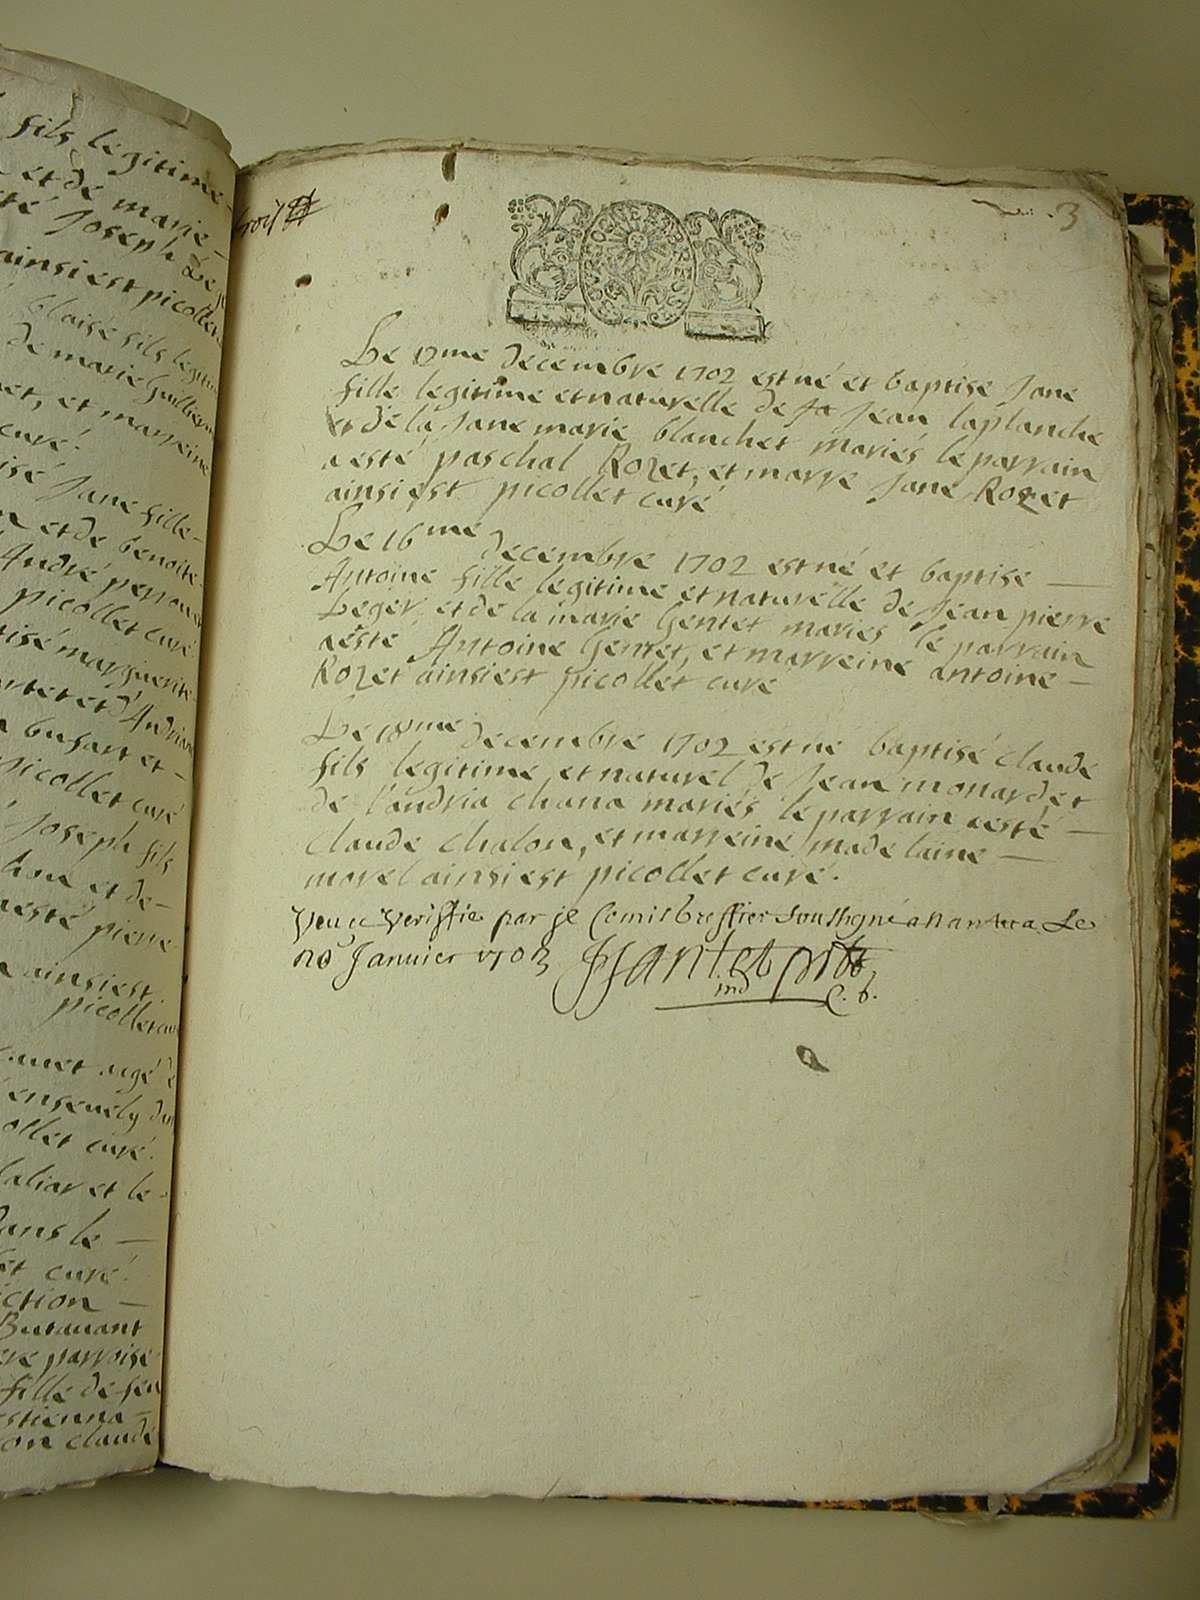 fils legitime
et de marie
té Joseph Le
ainsi est picollet
blaise fils legitim
de marie Guillier
et, et marreine
curé.
isé Jane fille
n et de benoite
André perrou
picollet curé
tisé marguerite
et d'Andria
a busart et
picollet curé
Joseph fils
hon et de
aesté pierre
ainsi est
picollet cu
uet agé d
ensevely dan
ollet curé.
aliar et le
dans le
et curé.
ction
Buravant
ere parroise
fille de feu
estienna
on claude
trois
3
Le 12me decembre 1702 est né et baptise Jane
fille legitime et naturelle de Jean laplanche
et de la Jane marie blanchet mariés le parrain
aesté paschal Rozet, et marre Jane Rozet
ainsi est picollet curé
Le 16me decembre 1702 est né et baptise
Antoine fille legitime et naturelle de Jean pierre
Leger, et de la marie Gentet mariés le parrain
aesté Antoine Gentet, et marreine antoine
Rozet ainsi est picollet curé
Le 18me decembre 1702 est né baptisé claude
fils legitime et naturel de Jean monard et
de l'andria chana mariés le parrain aesté
claude chalon, et marreine madelaine
morel ainsi est picollet curé.
Veu et veriffie par je Comis greffier soussigné a nantua Le
20 Janvier 1703
C. G.